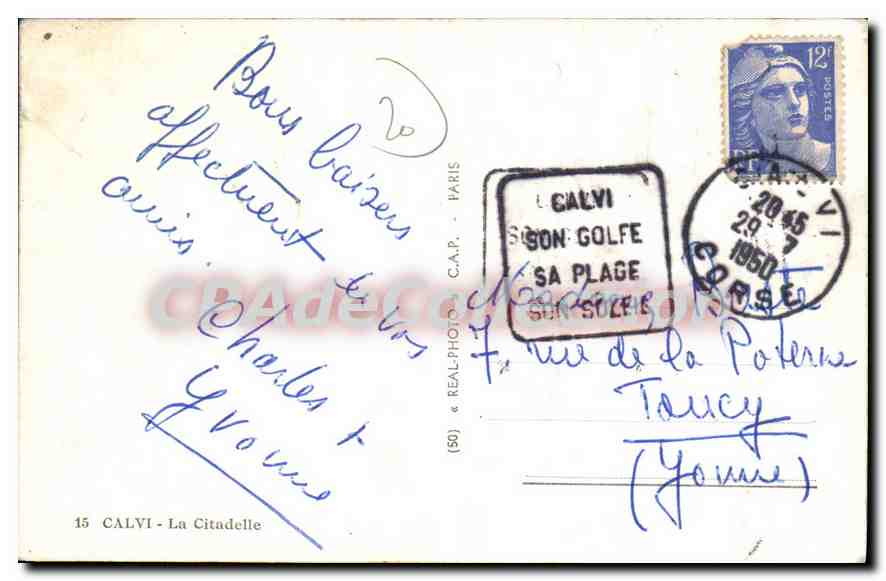 Bons baisers
affectueux de vos
amis.
Charles &
Yvonne
20
15 CALVI - La Citadelle
(50) « REAL-PHOTO » C.A.P. - PARIS
12F
POSTES
RF
CALVI
SON GOLFE
SA PLAGE
SON SOLEIL
CALVI
20 45
29 - 7
1950
CORSE
Madame
7, rue de la Poterne
Toucy
(Yonne)
CPAdeCollection